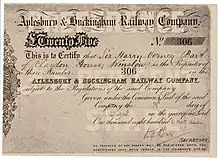 Aylesbury & Buckingham Railway Company.
£Twenty Five No. 306
This is to Certify that Sir Harry Verney Bart
Claydon House, Winslow is the Proprietor of
Share Number 306 of the
AYLESBURY & BUCKINGHAM RAILWAY COMPANY,
subject to the Regulations of the said Company
Given under the Common Seal of the said
Company the
day of in the year of our Lord
One thousand eight hundred and sixty